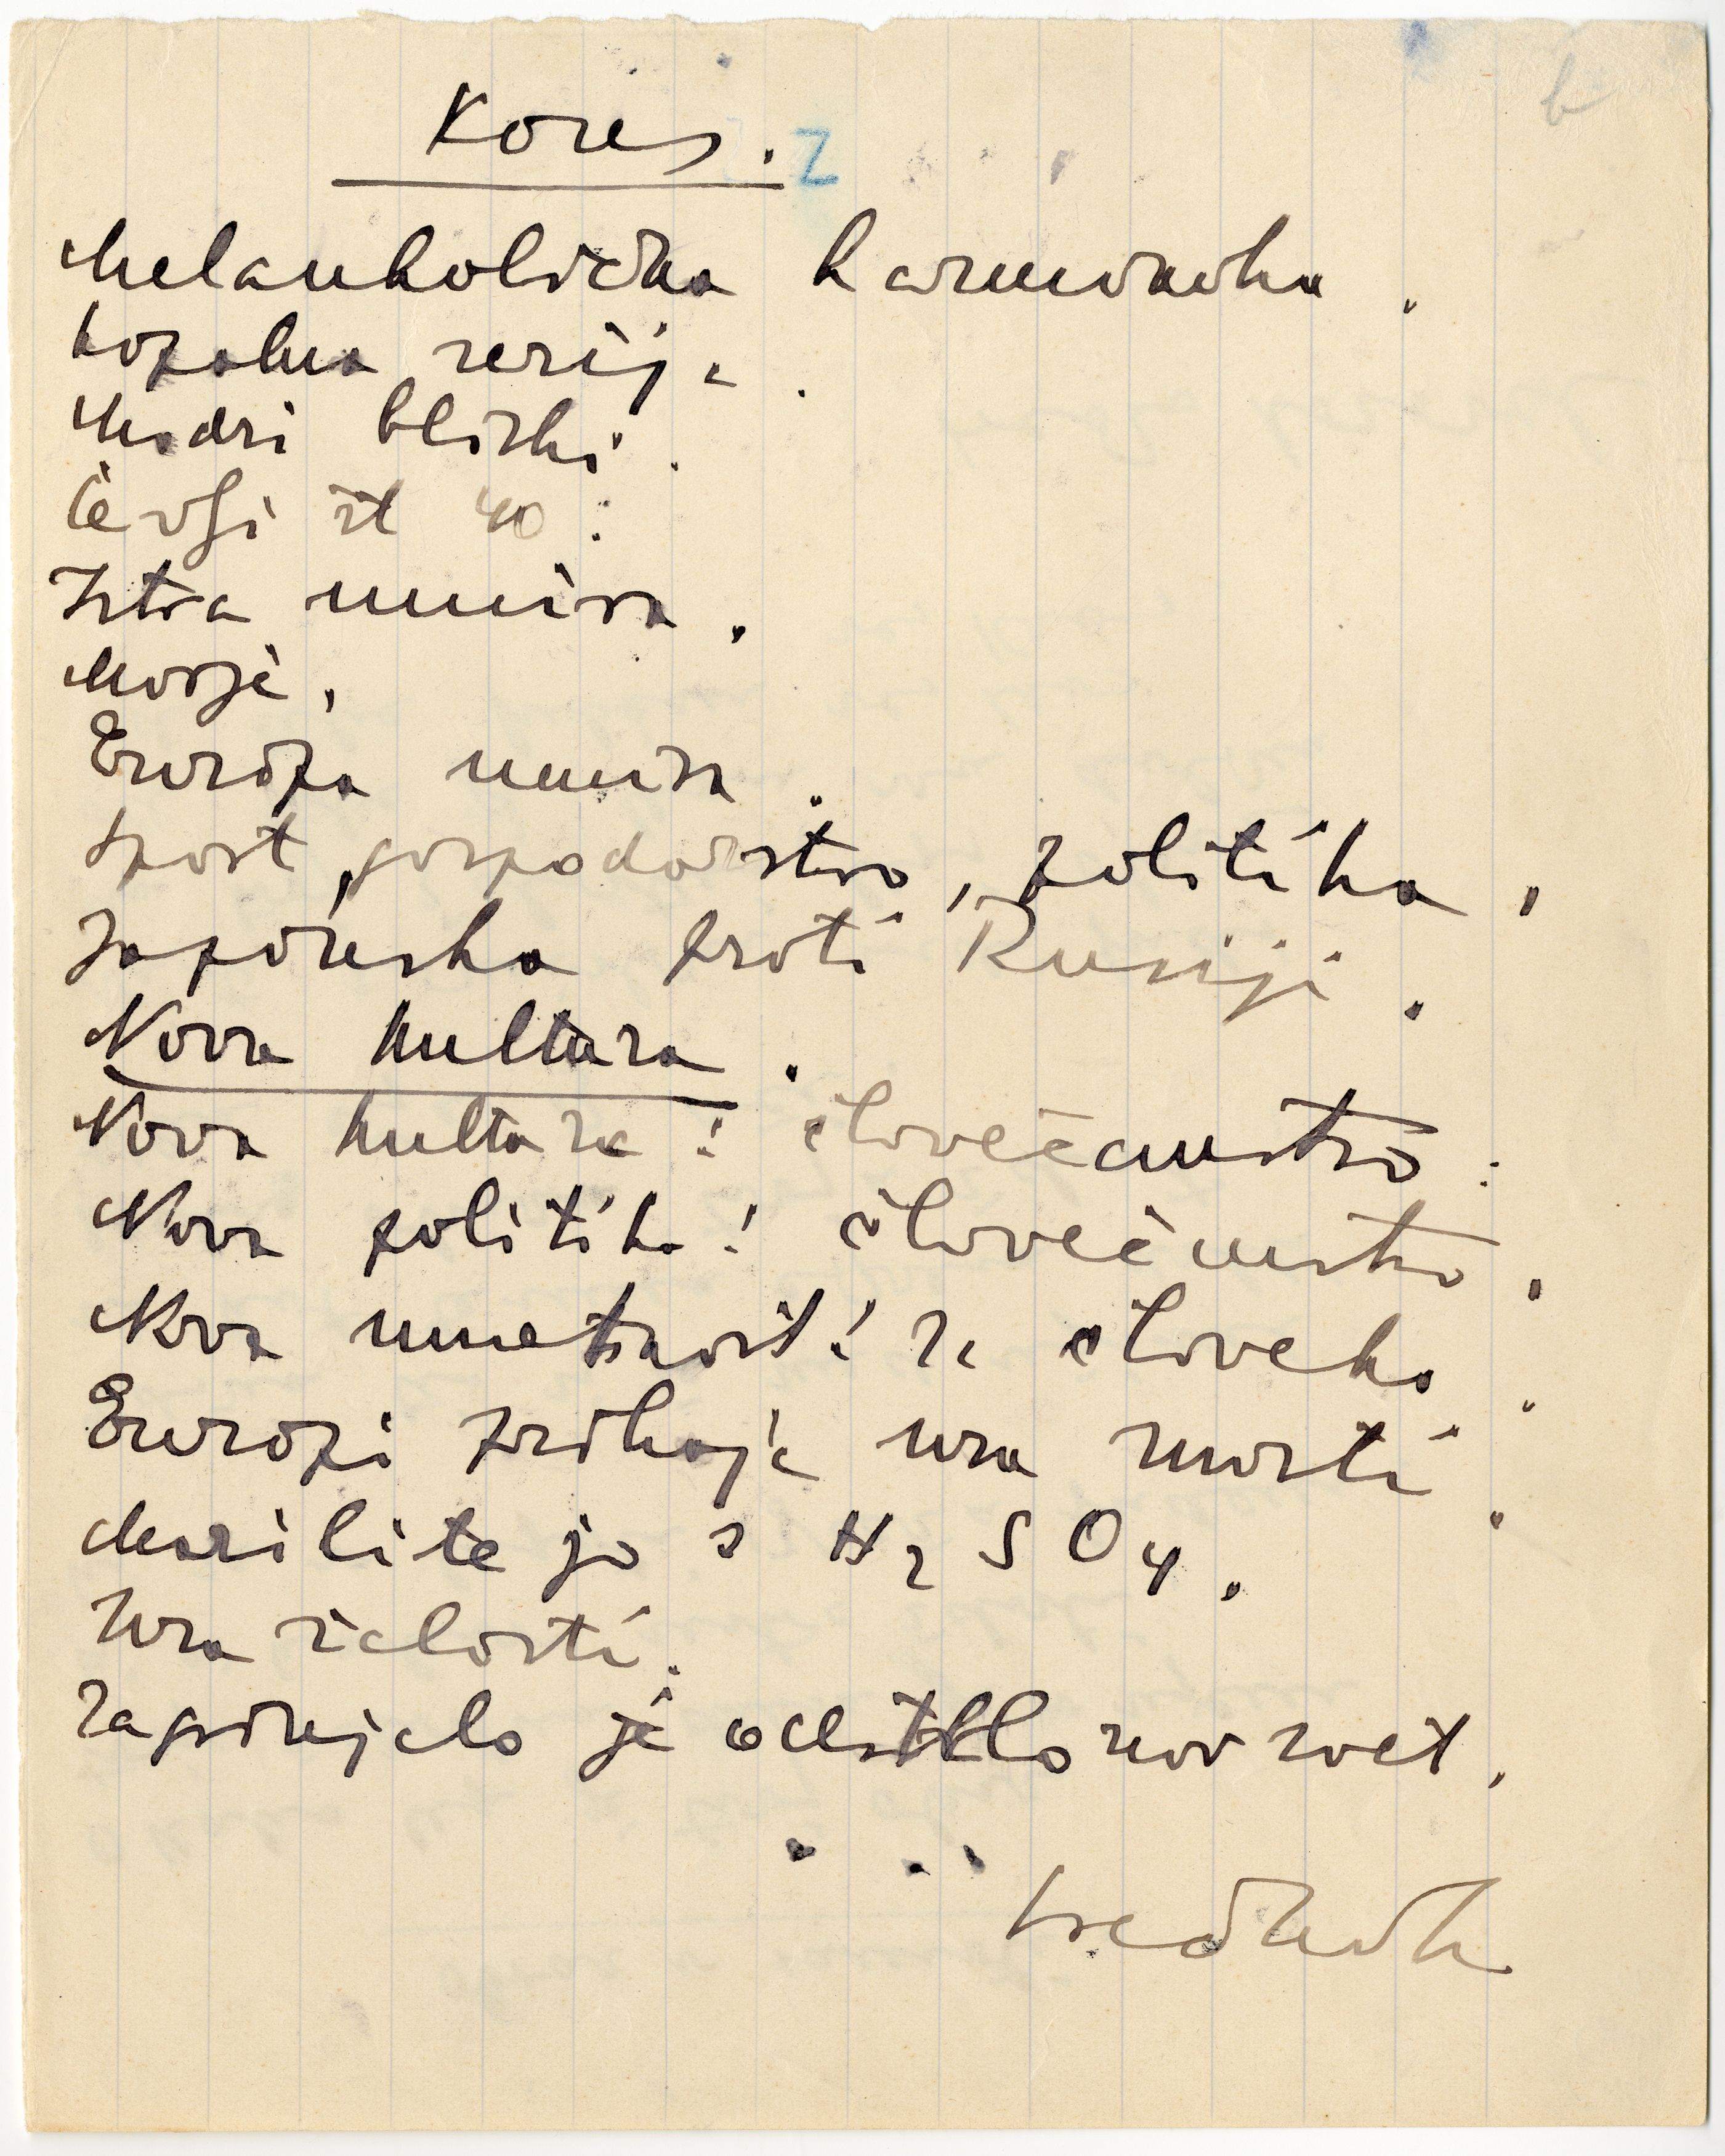 Kons. Z
Melanholična harmonika.
Kopalna sezija.
Modri bliski.
Čevlji št 40.
Istra umira.
Morje.
Evropa umira.
Šport, gospodarstvo, politika,
Japonska proti Rusiji.
Nova kultura.
Nova kultura: človečanstvo.
Nova politika: človečanstvo.
Nova umetnost: za človeka.
Evropi prihaja ura smrti.
Mazilite jo s H2SO4.
Ura žalosti.
je nov svet.